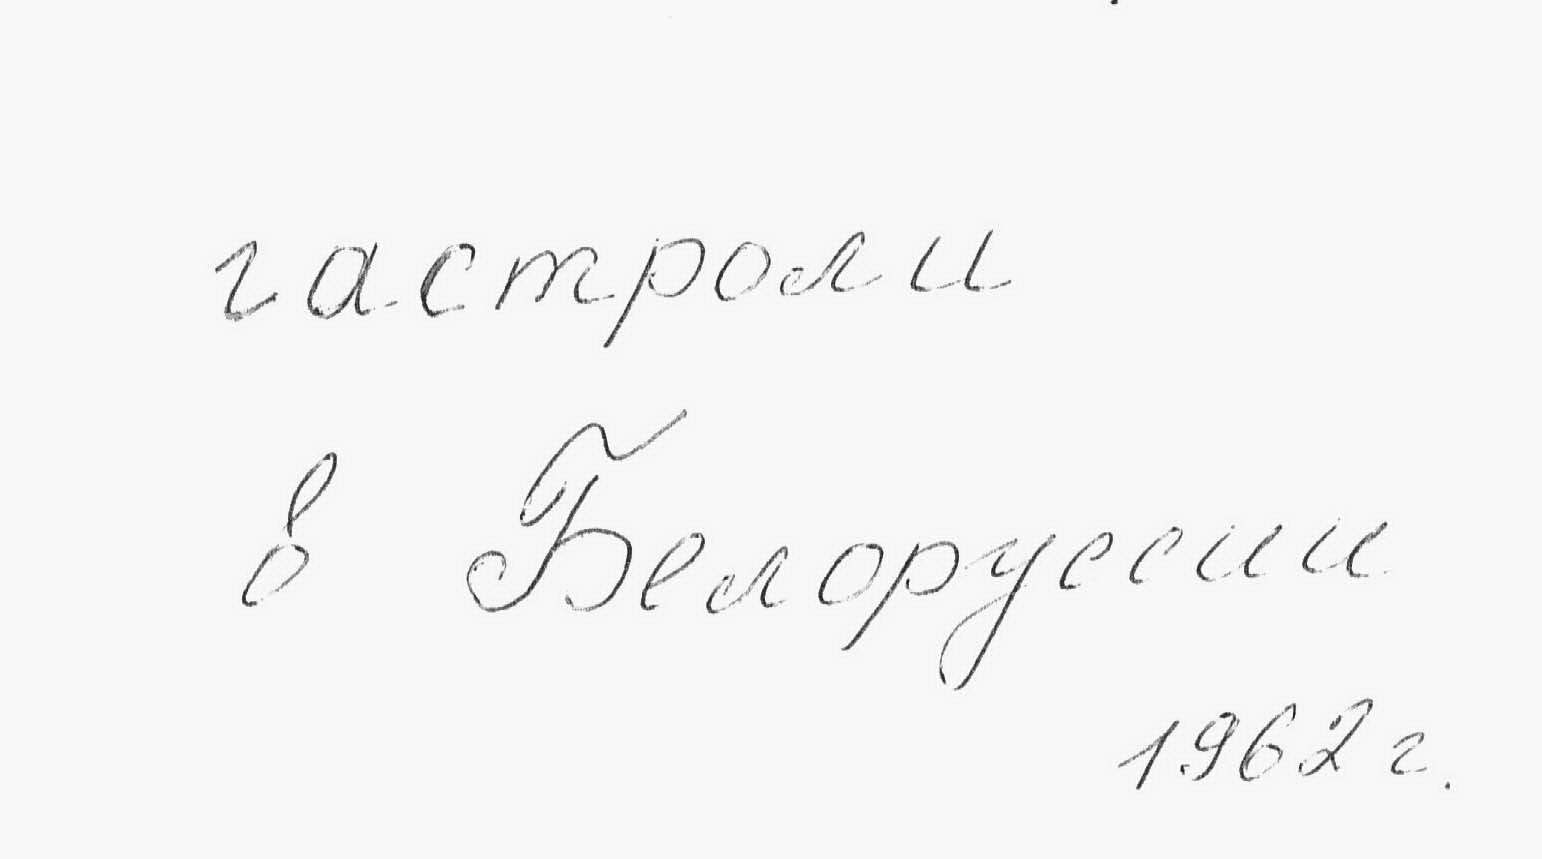 гастроли
в Белоруссии
1962 г.